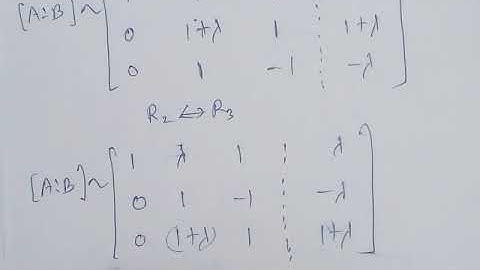 [A:B] ~
0 1+λ 1 1+λ
0 1 -1 -λ
R₂ ↔ R₃
1 λ 1 λ
[A:B] ~ 0 1 -1 -λ
0 (1+λ) 1 1+λ